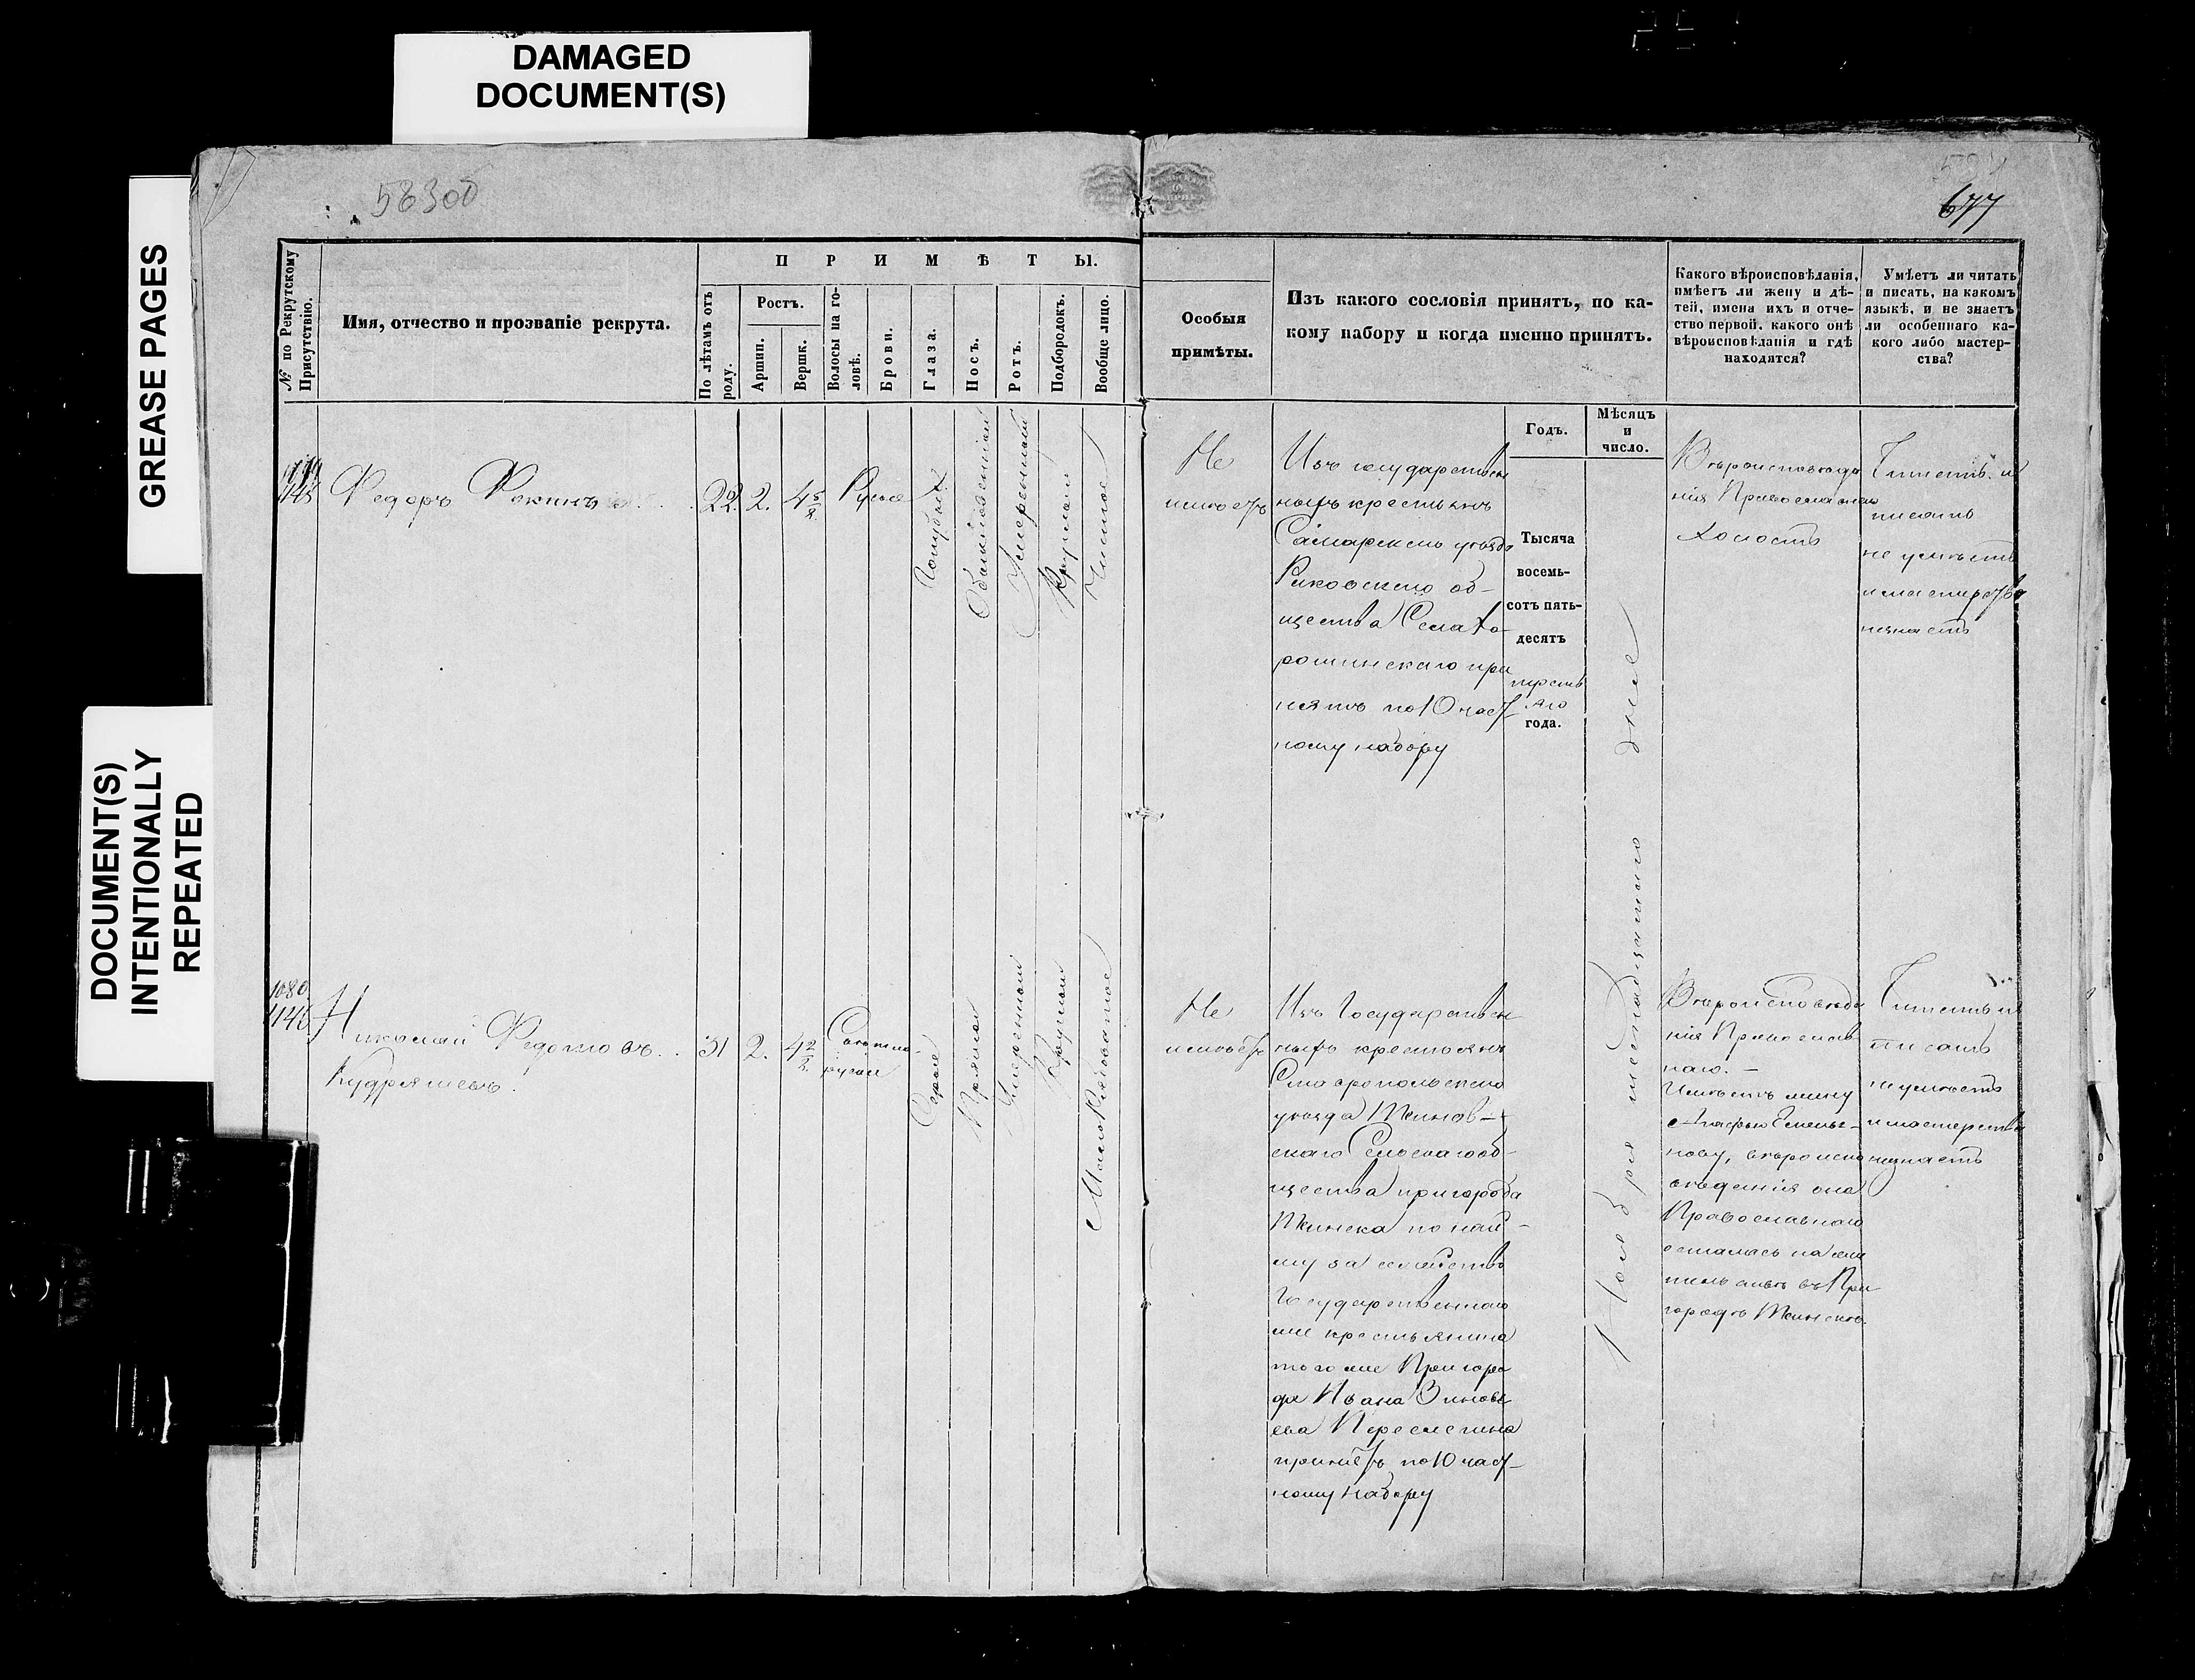 DAMAGED
DOCUMENT(S)
GREASE PAGES
DOCUMENT(S)
INTENTIONALLY
REPEATED
677
№ по Рекрутскому
Присутствію.
Имя, отчество и прозваніе рекрута.
ПРИМѢТЫ.
По лѣтамъ отъ
роду.
Ростъ.
Аршин.
Вершк.
Волосы на го-
ловѣ.
Брови.
Глаза.
Носъ.
Ротъ.
Подбородокъ.
Вообще лицо.
Особыя
примѣты.
Изъ какого сословія принятъ, по ка-
кому набору и когда именно принятъ.
Годъ.
Мѣсяцъ
и
число.
Какого вѣроисповѣданія,
имѣетъ ли жену и дѣ-
тей, имена ихъ и отче-
ство первой, какого онѣ
вѣроисповѣданія и гдѣ
находятся?
Умѣетъ ли читать
и писать, на какомъ
языкѣ, и не знаетъ
ли особеннаго ка-
кого либо мастер-
ства?
1145
Федоръ Фокинъ
22
2.
4 5/8
Русые
Голубые
Обыкновенный
Умеренный
Круглый
Чистое
Не
имѣетъ
Изъ государствен
ныхъ крестьянъ
Самарскаго уѣзда
общества Села
принятъ по 10 част-
ному набору
Тысяча
восемь-
сотъ пять-
десятъ
третьяго
года.
Ноября шестнадцатаго дня
Вѣроисповѣда
нія Православнаго
Холостъ
Читать и
писать
не умѣетъ
и мастерства
незнаетъ
1080
1146
Николай Федоровъ
Кудряшевъ.
31
2.
4 2/8
Свѣтло-
русые
Серые
Прямой
Умеренный
Круглый
Не
имѣетъ
Изъ Государствен
ныхъ крестьянъ
Ставропольскаго
уѣзда Тіинов-
скаго Сельскаго об-
щества пригорода
Тіинска по най-
му за семейство
Государственнаго
же крестьянина
того же Пригоро
да Ивана Зиновь
ева
принятъ по 10 част-
ному набору
Вѣроисповѣда
нія Православ
наго.
Имѣетъ жену
вѣроиспо
вѣданія она
Православнаго
осталась на жи
тельствѣ въ При
городѣ Тіинскѣ
Читать и
писать
не умѣетъ
и мастерства
незнаетъ